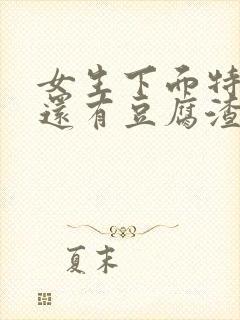 女生下面特
還有豆腐渣
夏末